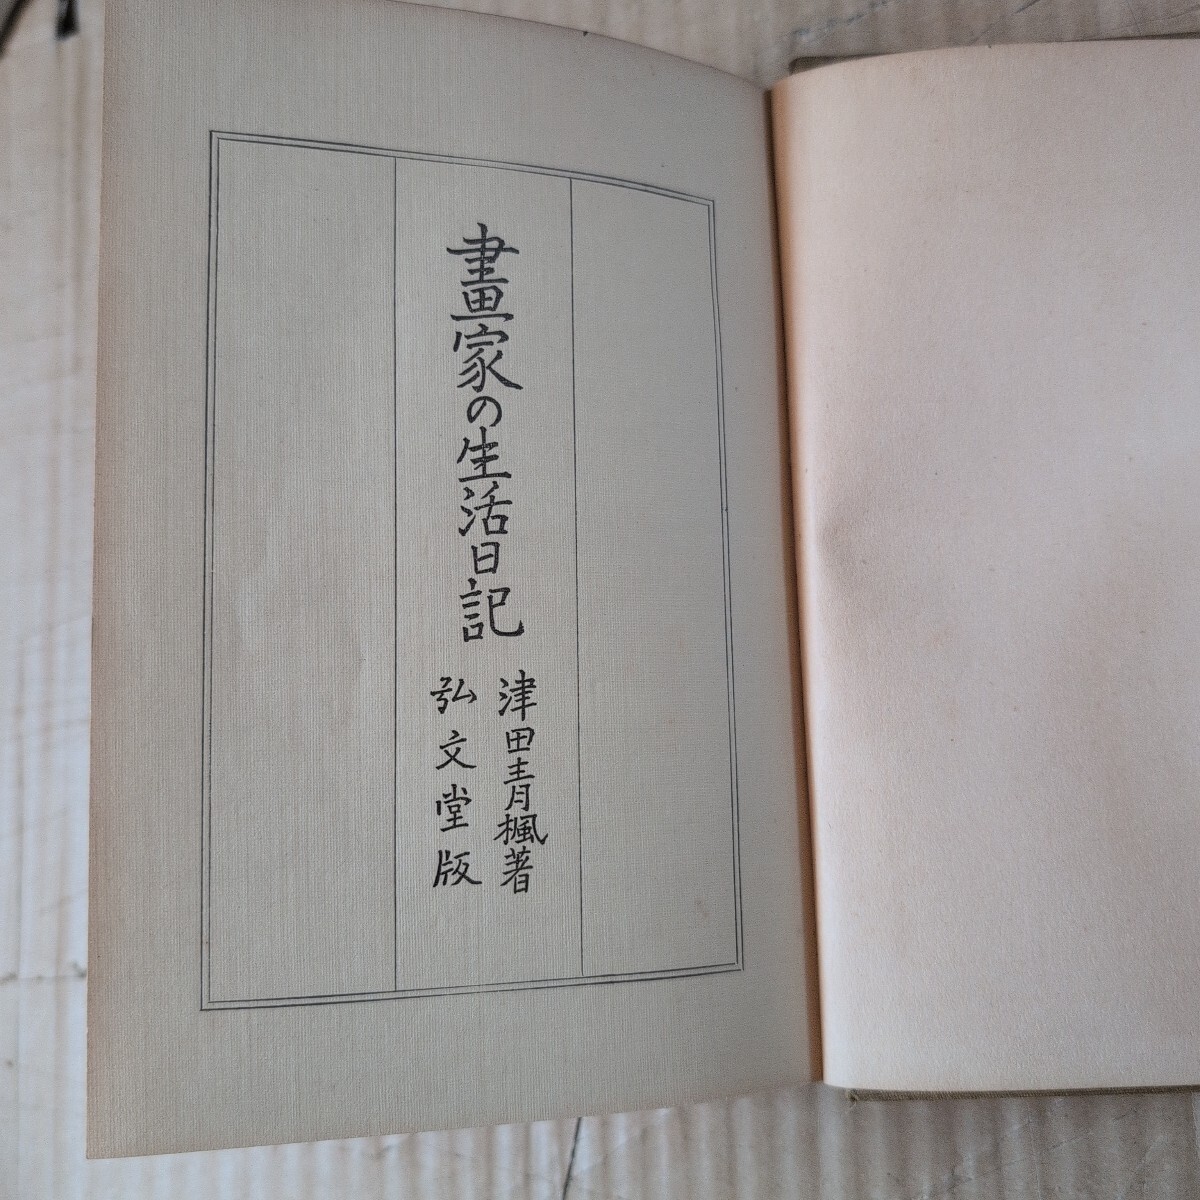 畫家の生活日記
津田青楓著
弘文堂版